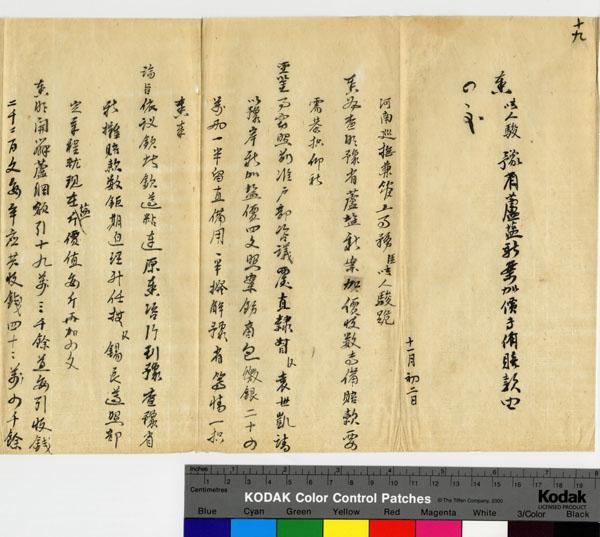 十九
奏 陳人駿 豫省蘆鹽新案加價專備賠款由
十一月初二日
河南巡撫兼管上 陳人駿跪
奏為查明豫省蘆鹽新案加價收數專備賠款要
需恭摺仰祈
聖鑒事竊照前准戶部咨議覆直隸督臣袁世凱請
以豫岸新加鹽價四文照案飭商包繳銀二十四
萬兩一半留直備用一半撥解豫省等情一摺
奏奉
諭旨依議欽此欽遵黏連原奏咨行到豫查豫省
新攤賠款數鉅期迫經升任撫臣錫良遵照部
定章程就現在鹽價值每斤再加四文
奏明開辦蘆綱額引十九萬三千餘道每引收錢
二千二百文每年應共收錢四十二萬四千餘
Inches
Centimetres
KODAK Color Control Patches
© The Tiffen Company, 2000
Kodak
LICENSED PRODUCT
Blue Cyan Green Yellow Red Magenta White 3/Color Black